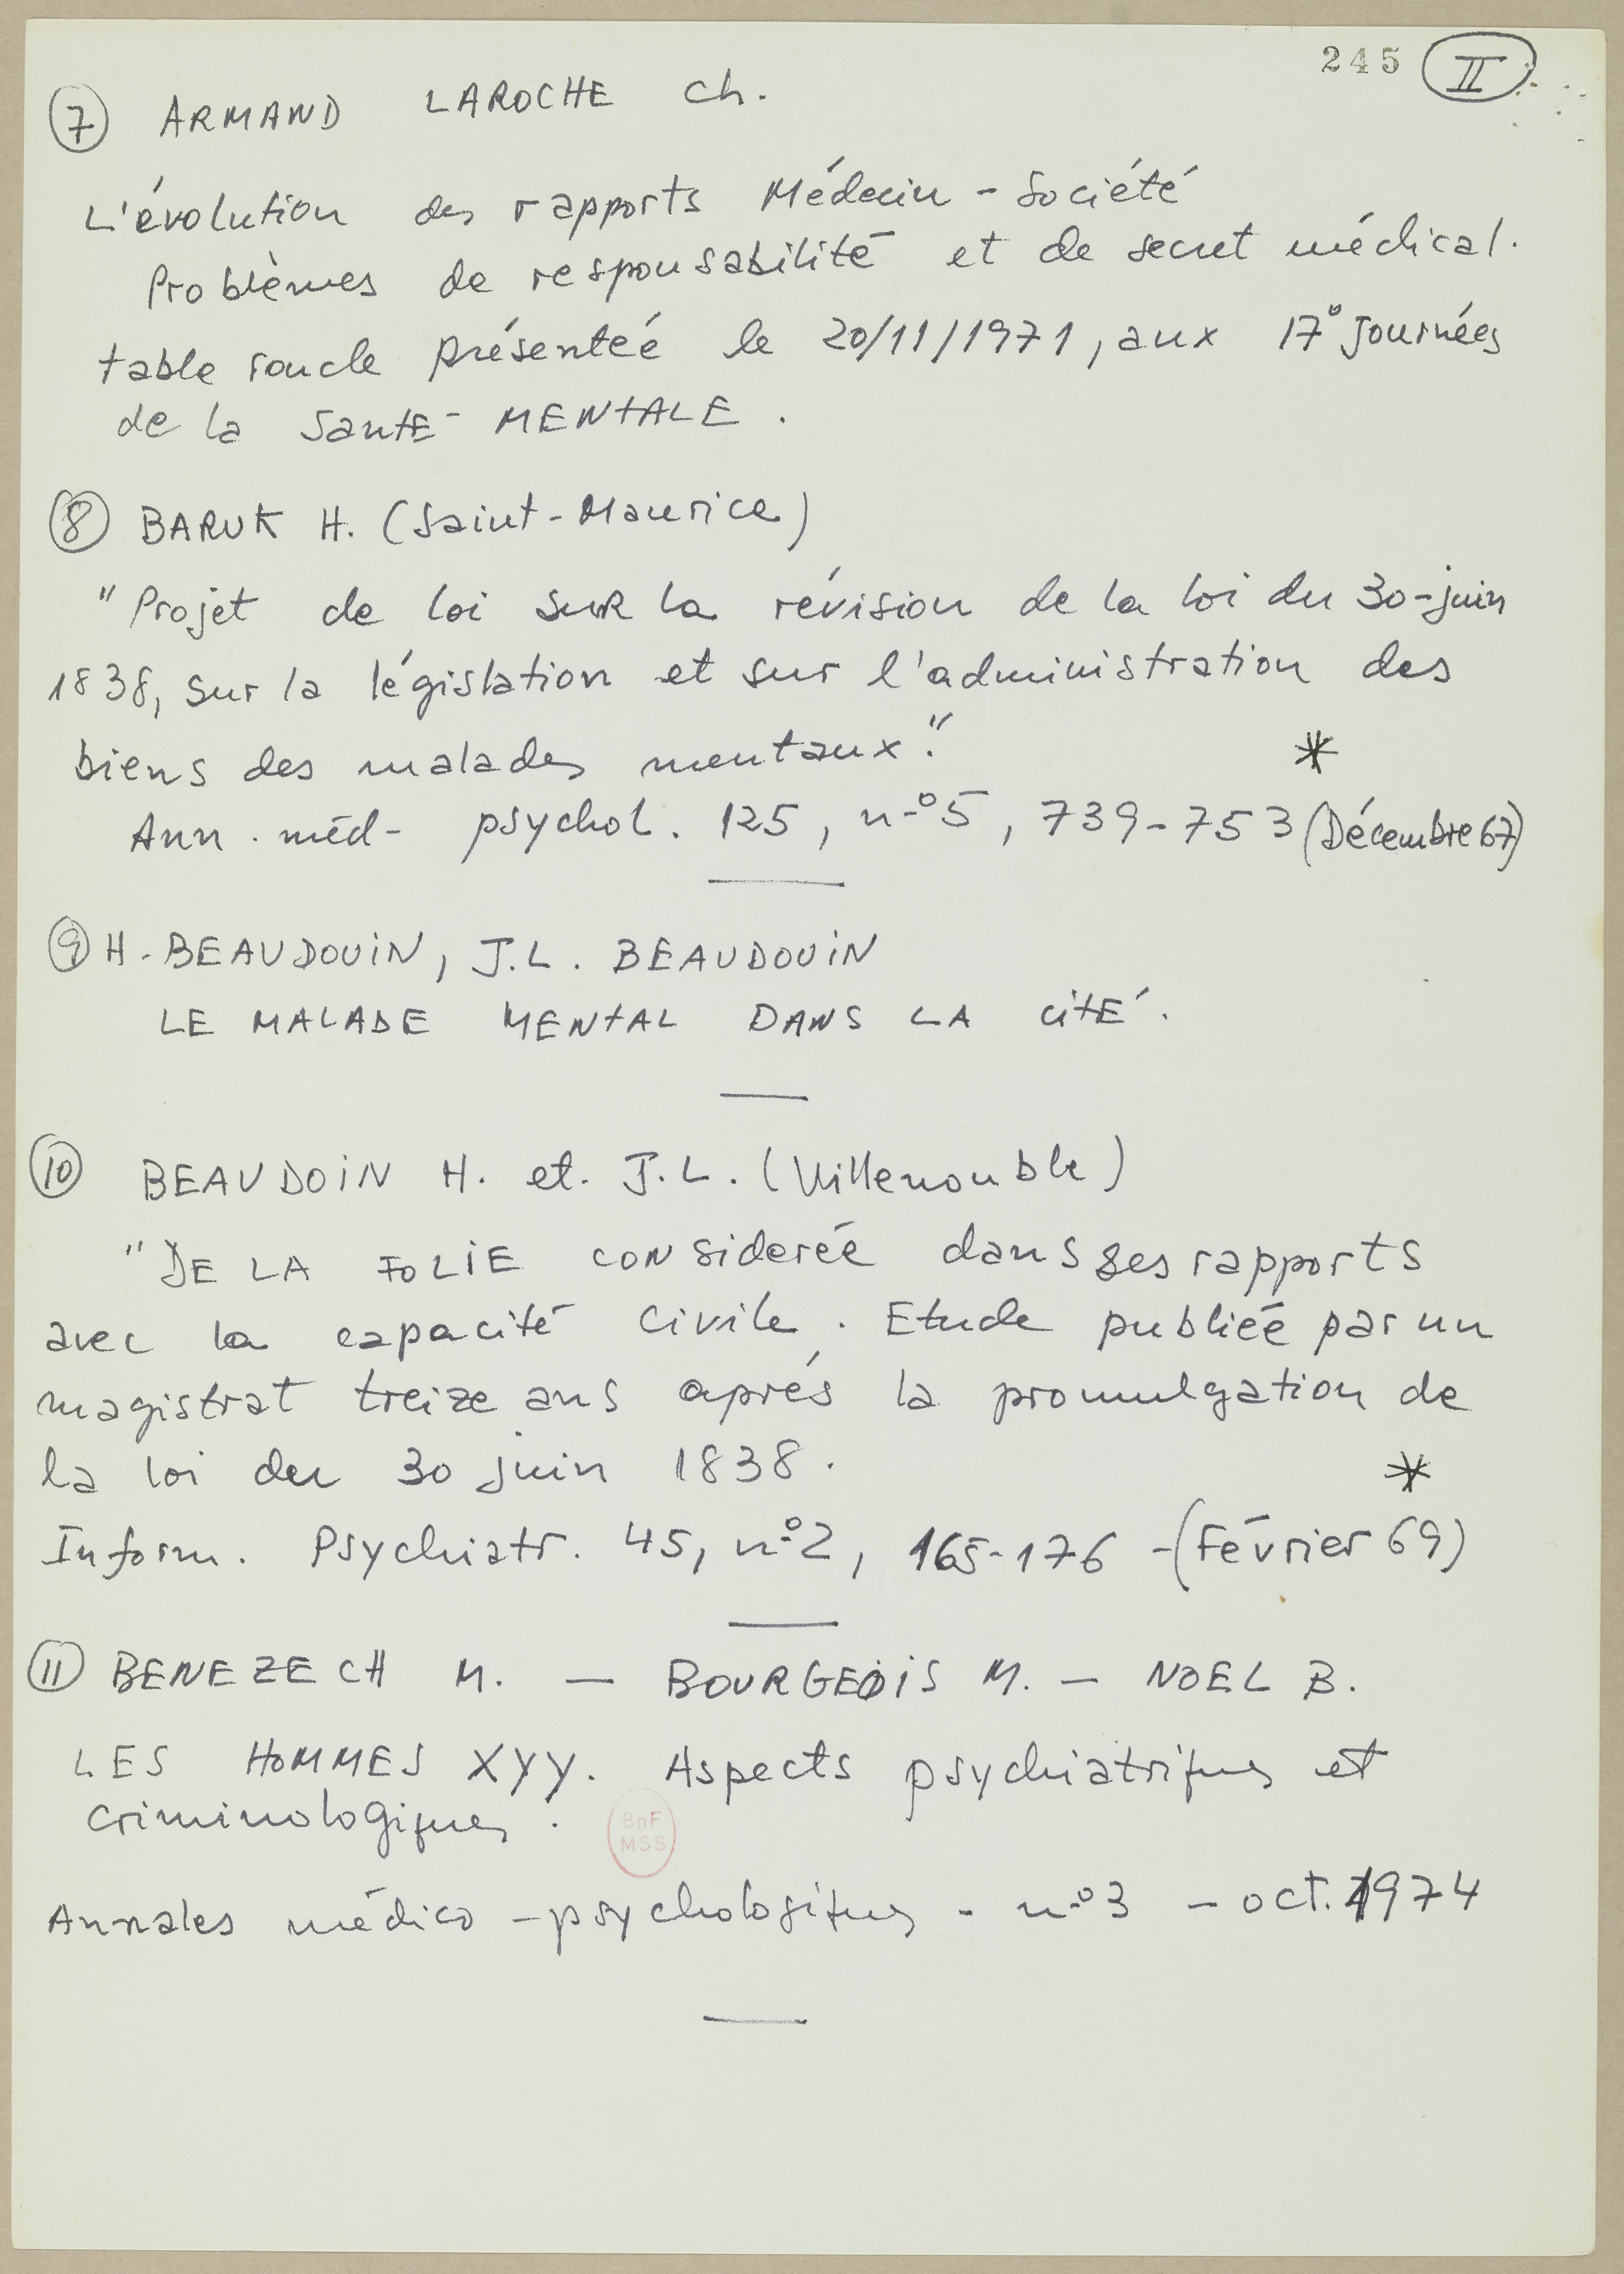 245 II
7 ARMAND LAROCHE Ch.
L'évolution des rapports Médecin - Société
Problèmes de responsabilité et de secret médical.
table ronde présentée le 20/11/1971, aux 17° Journées
de la SantE MENtALE.
8 BARUK H. (Saint-Maurice)
"Projet de loi suR la révision de la loi du 30-juin
1838, sur la législation et sur l'administration des
biens des malades mentaux."
*
Ann. méd- psychol. 125, n°5, 739-753 (Décembre 67)
9 H. BEAUDOUiN, J.L. BEAUDOUiN
LE MALADE MENtAL DANS LA CitÉ.
10 BEAUDOiN H. et. J.L. (Villenouble)
"DE LA FOLiE CONSiderée dans ses rapports
avec la capacité Civile. Etude publiée par un
magistrat treize ans aprés la promulgation de
la loi du 30 juin 1838.
*
Inform. Psychiatr. 45, n°2, 165-176 -(Février 69)
11 BENEZECH M. — BOURGEOiS M. — NOEL B.
LES HOMMES XYY. Aspects psychiatriques et
Criminologiques.
BnF
MSS
Annales médico-psychologiques - n°3 - oct. 1974